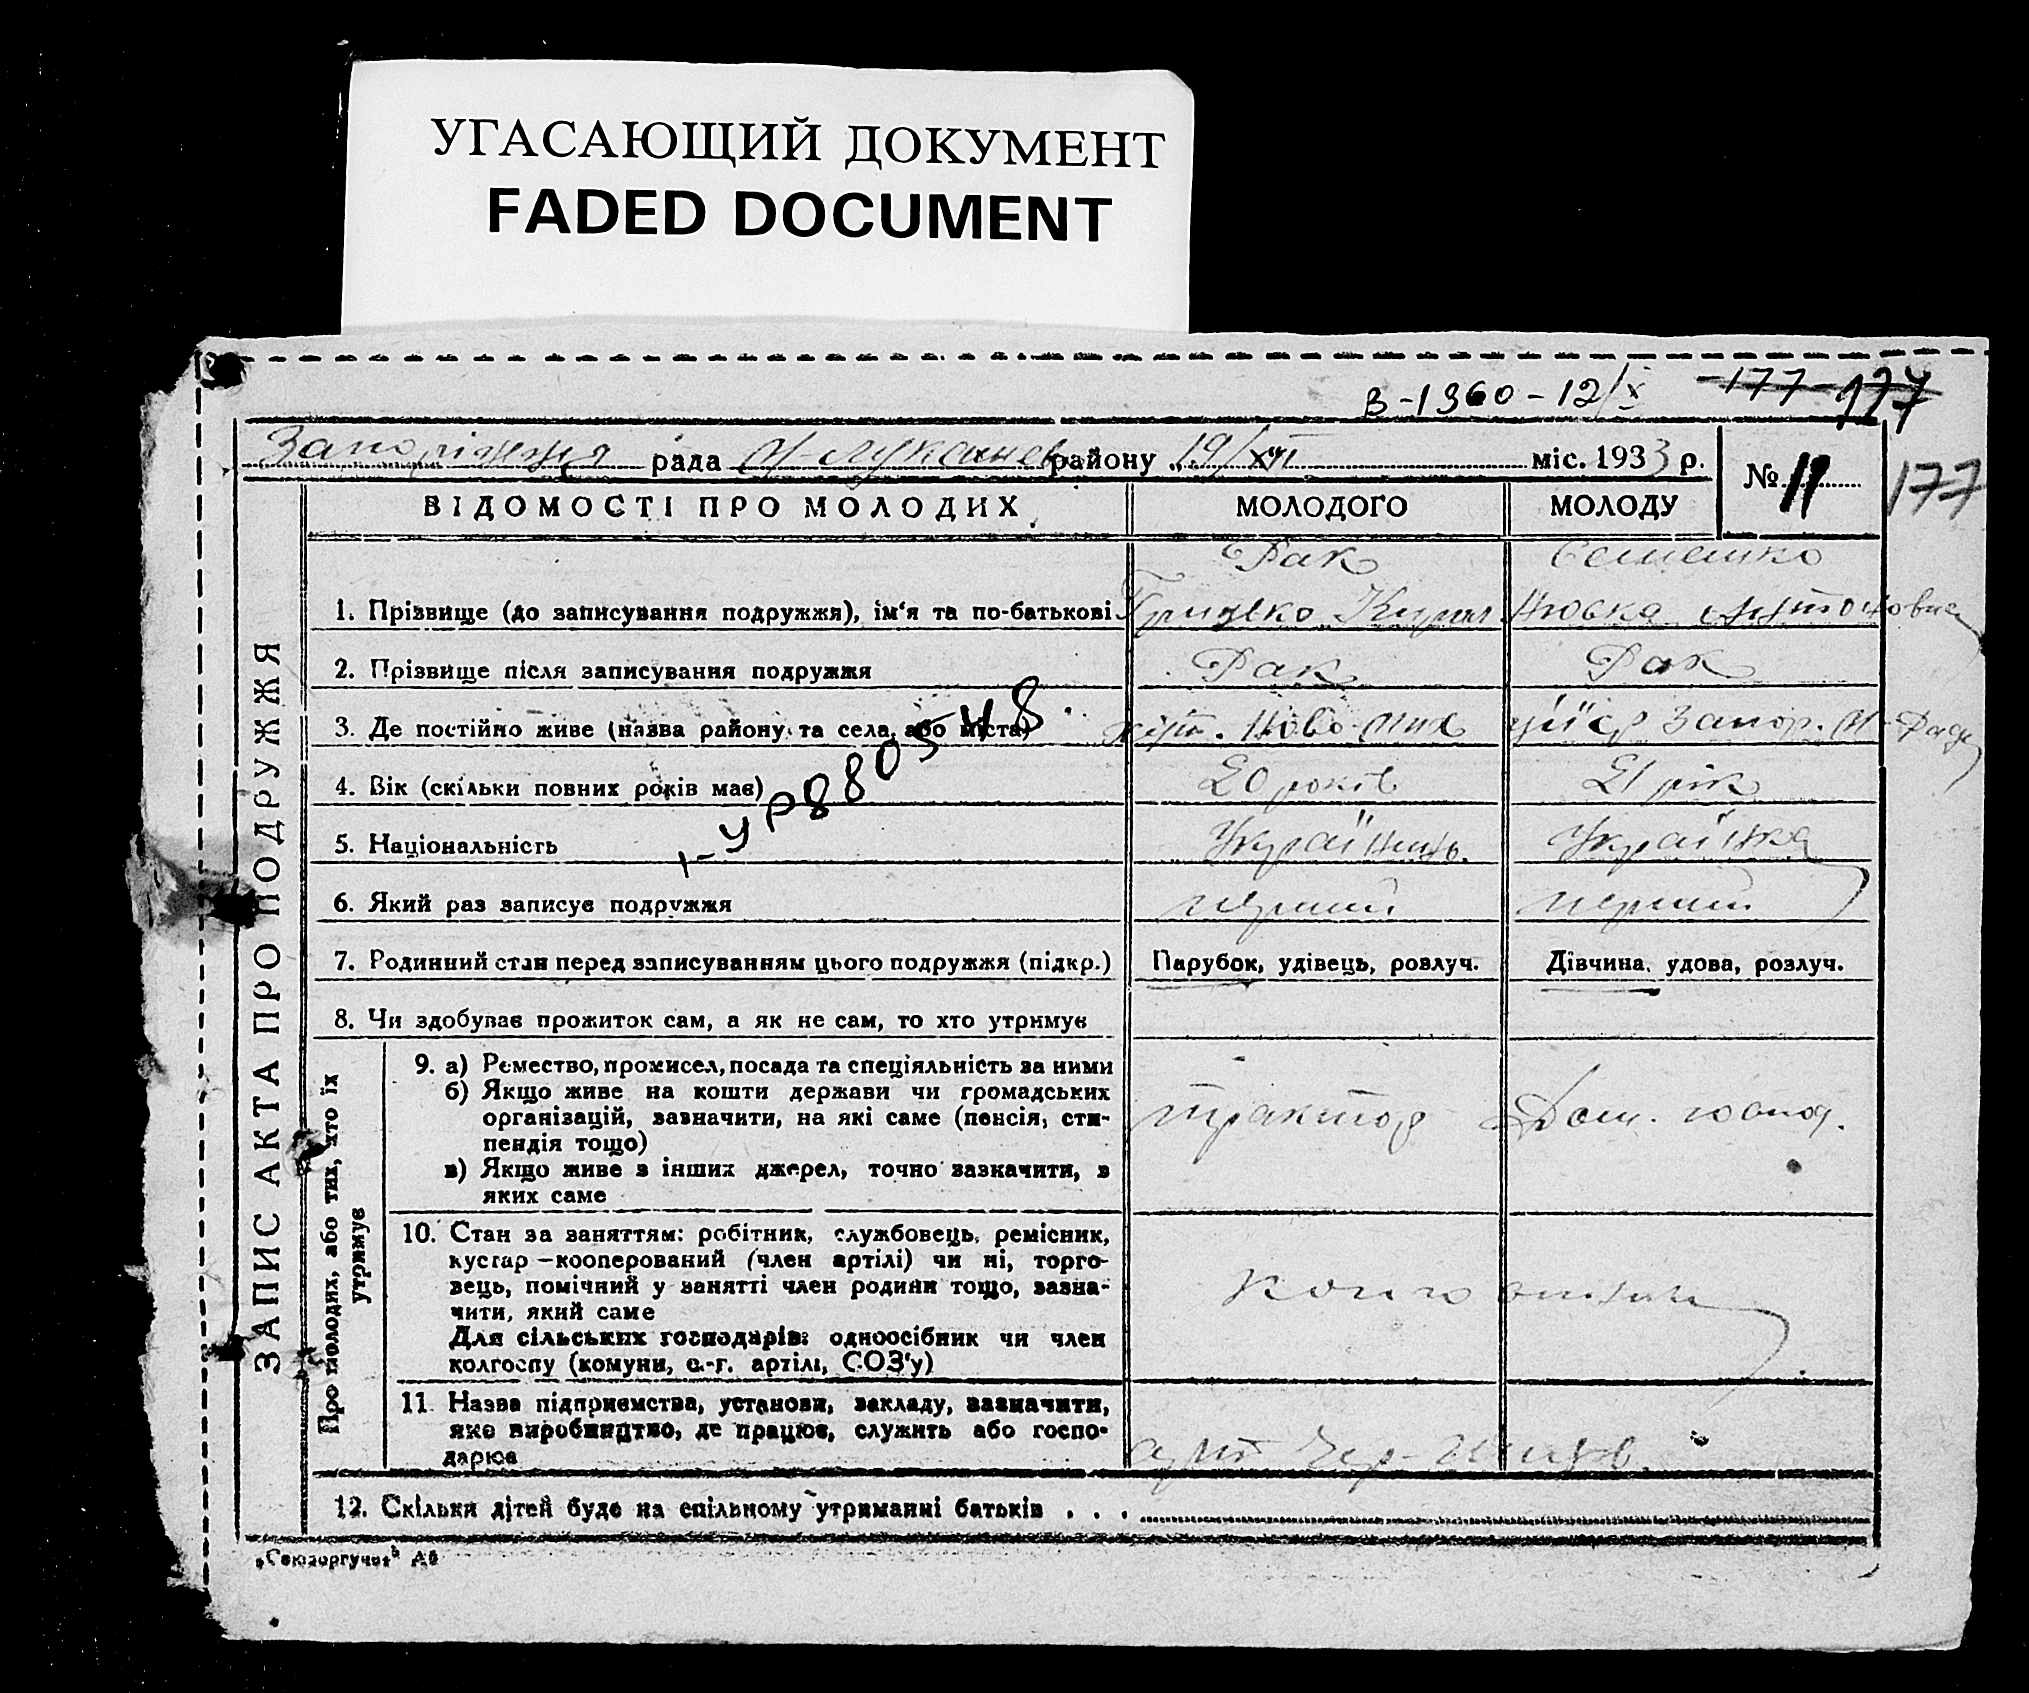 УГАСАЮЩИЙ ДОКУМЕНТ
FADED DOCUMENT
В-1960-12/X -177- 177
Запоріжжя рада районy 19/ міс. 1933 р. № 11 177
ВІДОМОСТІ ПРО МОЛОДИХ МОЛОДОГО МОЛОДУ
Рак Семешко
1. Прізвище (до записування подружжя), ім'я та по-батькові Грицько Кирил Антоновна
2. Прізвище після записування подружжя Рак Рак
3. Де постійно живе (назва району та села або міста) Ново Запор. Рада
4. Вік (скільки повних років має) 20 років 21 рік
1-УР 880548
5. Національність Українець. Українка
6. Який раз записує подружжя перший перший
7. Родинний стан перед записуванням цього подружжя (підкр.) Парубок, удівець, розлуч. Дівчина, удова, розлуч.
8. Чи здобував прожиток сам, а як не сам, то хто утримує
9. а) Ремество, промисел, посада та спеціяльність за ними
б) Якщо живе на кошти держави чи громадських
організацій, зазначити, на які саме (пенсія, сти-
пендія тощо)
в) Якщо живе з інших джерел, точно зазначити, з
яких саме
трактор Дом.
10. Стан за заняттям: робітник, службовець, ремісник,
кустар—кооперований (член артілі) чи ні, торго-
вець, помічний у занятті член родини тощо, зазна-
чити, який саме
Для сільських господарів: одноосібник чи член
колгоспу (комуни, с.-г. артілі, СОЗ'у)
11. Назва підприємства, установи, закладу, зазначити,
яке виробництво, де працює, служить або госпо-
дарює
арт Чер-
12. Скільки дітей буде на спільному утриманні батьків . . .
„Союзоргучот" А6
ЗАПИС АКТА ПРО ПОДРУЖЖЯ
Про молодих, або тих, хто їх
утримує